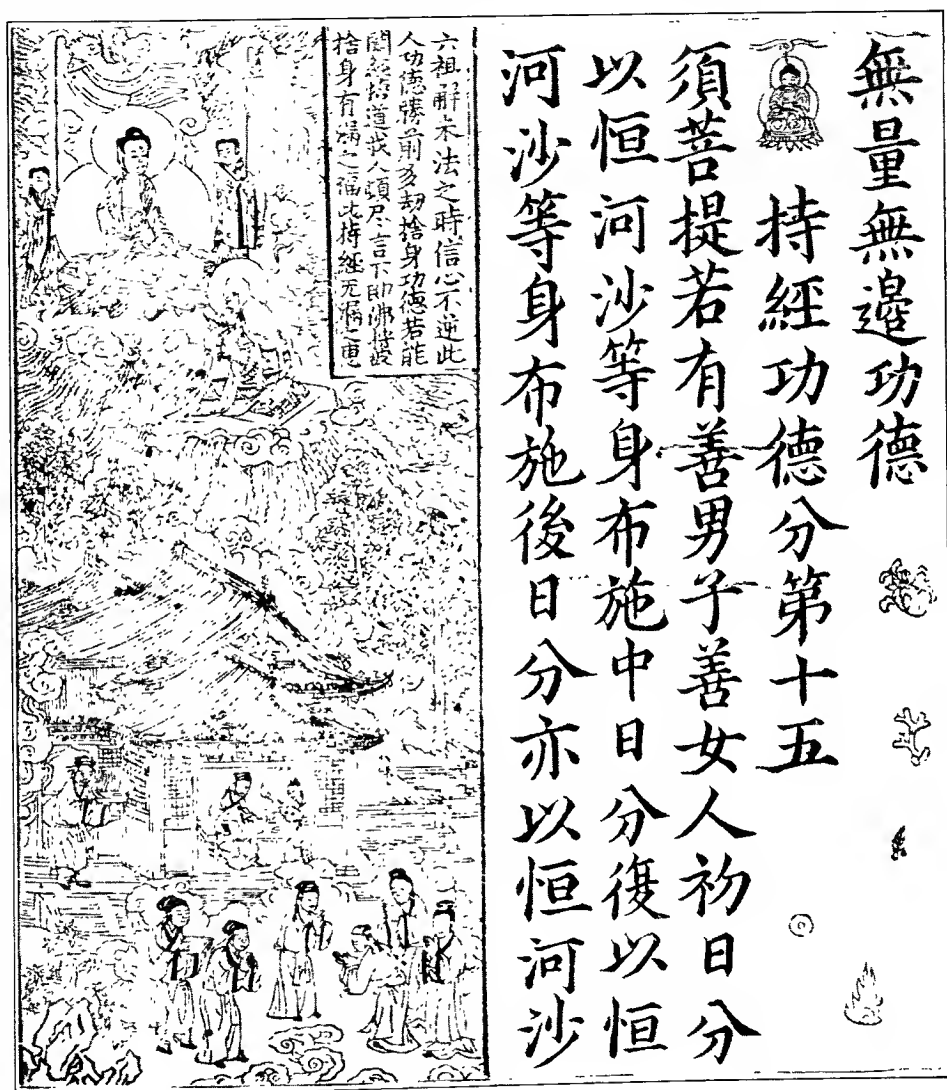 無量無邊功德
持經功德分第十五
須菩提若有善男子善女人初日分
以恒河沙等身布施中日分復以恒
河沙等身布施後日分亦以恒河沙
六祖解末法之時信心不逆此
人功德勝前多劫捨身功德若能
聞經悟道我人頓尽言下即佛將彼
捨身有漏之福比持經无漏之